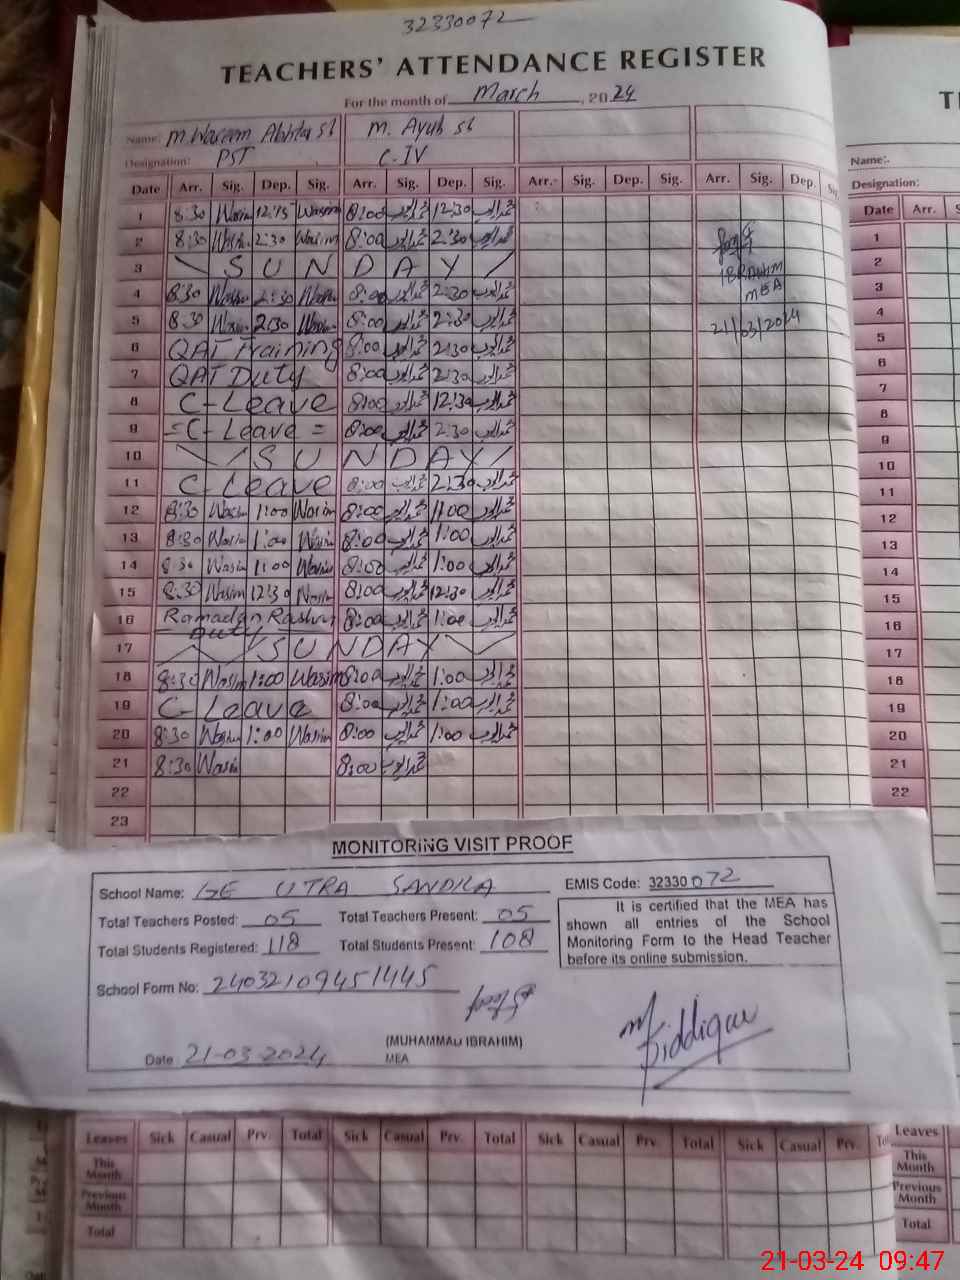 32330072
TEACHERS' ATTENDANCE REGISTER
For the month of March, 2024
Name: M. Waseem Akhtar M. Ayub
Designation: PST C-IV
Date Arr. Sig. Dep. Sig. Arr. Sig. Dep. Sig. Arr. Sig. Dep. Sig. Arr. Sig. Dep. Sig.
1 8:30 Wasim 12:15 Wasim 8:00 محمد ایوب 12:30 محمد ایوب
2 8:30 Wasim 2:30 Wasim 8:00 محمد ایوب 2:30 محمد ایوب
3 SUNDAY
4 8:30 Wasim 2:30 Wasim 8:00 محمد ایوب 2:30 محمد ایوب
5 8:30 Wasim 2:30 Wasim 8:00 محمد ایوب 2:30 محمد ایوب
6 QAT Training 8:00 محمد ایوب 2:30 محمد ایوب
7 QAT Duty 8:00 محمد ایوب 2:30 محمد ایوب
8 C-Leave 8:00 محمد ایوب 12:30 محمد ایوب
9 =C-Leave= 8:00 محمد ایوب 2:30 محمد ایوب
10 SUNDAY
11 C-Leave 8:00 محمد ایوب 2:30 محمد ایوب
12 8:30 Wasim 1:00 Wasim 8:00 محمد ایوب 1:00 محمد ایوب
13 8:30 Wasim 1:00 Wasim 8:00 محمد ایوب 1:00 محمد ایوب
14 8:30 Wasim 1:00 Wasim 8:00 محمد ایوب 1:00 محمد ایوب
15 8:30 Wasim 12:30 Wasim 8:00 محمد ایوب 12:30 محمد ایوب
16 Ramadan Rashan Duty 8:00 محمد ایوب 1:00 محمد ایوب
17 SUNDAY
18 8:30 Wasim 1:00 Wasim 8:00 محمد ایوب 1:00 محمد ایوب
19 C-Leave 8:00 محمد ایوب 1:00 محمد ایوب
20 8:30 Wasim 1:00 Wasim 8:00 محمد ایوب 1:00 محمد ایوب
21 8:30 Wasim 8:00 محمد ایوب
22
23
IBRAHIM
MEA
21/03/2024
Name:-
Designation:
Date Arr.
1
2
3
4
5
6
7
8
9
10
11
12
13
14
15
16
17
18
19
20
21
22
MONITORING VISIT PROOF
School Name: GE UTRA SANDILA
EMIS Code: 32330072
Total Teachers Posted: 05 Total Teachers Present: 05
Total Students Registered: 118 Total Students Present: 108
School Form No: 24032109451445
It is certified that the MEA has
shown all entries of the School
Monitoring Form to the Head Teacher
before its online submission.
(MUHAMMAD IBRAHIM)
MEA
Date 21-03-2024
M Siddique
Leaves Sick Casual Prv. Total Sick Casual Prv. Total Sick Casual Prv. Total Sick Casual Prv.
This Month
Previous Month
Total
Leaves
This Month
Previous Month
Total
21-03-24 09:47